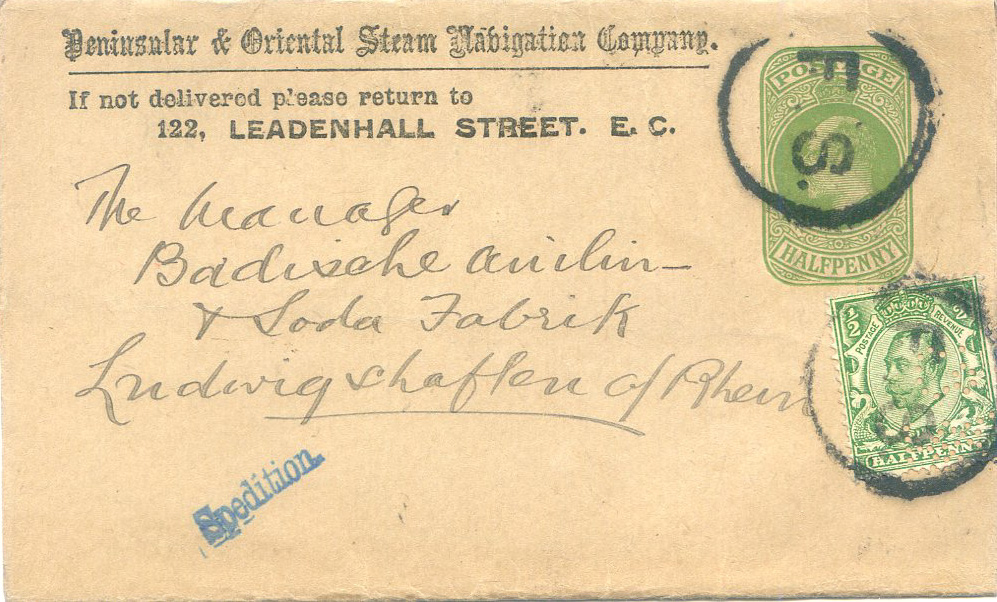 Peninsular & Oriental Steam Navigation Company.
If not delivered please return to
122, LEADENHALL STREET. E. C.
POSTAGE
HALFPENNY
F.S.
The Manager
Badische Anilin-
& Soda Fabrik
Ludwigschaffen o/ Rhein
1/2
POSTAGE
REVENUE
HALFPENNY
F
S
Spedition.